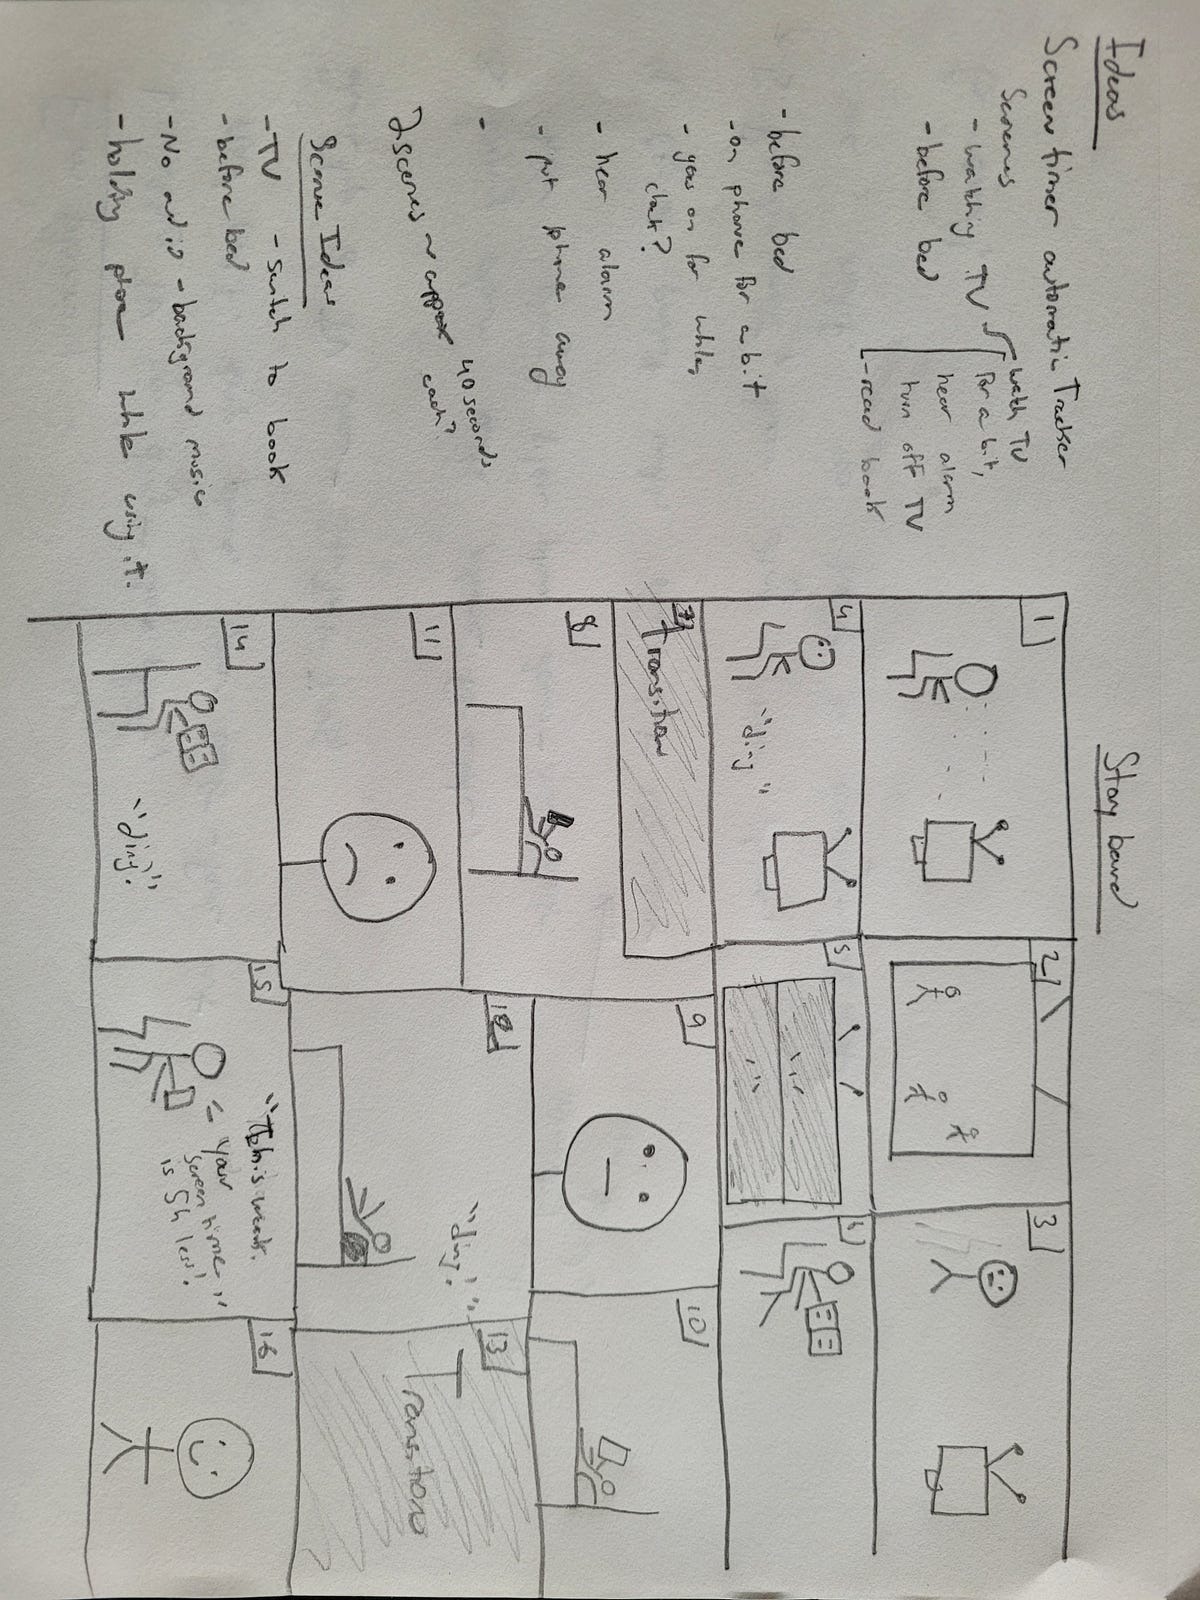 Ideas
Screen timer automatic Tracker
Scenes
- watching TV
- before bed
watch TV
for a bit,
hear alarm
turn off TV
- read book
- before bed
- on phone for a bit
- goes on for while,
clock?
- hear alarm
- put phone away
-
2 scenes ~ approx 40 seconds
each?
Scene Ideas
- TV - switch to book
- before bed
- No audio - background music
- holding phone while using it.
Story board
1
2
3
4
"ding"
5
6
7
Transition
8
9
10
11
12
"ding!"
13
Transitions
14
"ding!"
15
"This week.
your
screen time
is 5h less!"
16